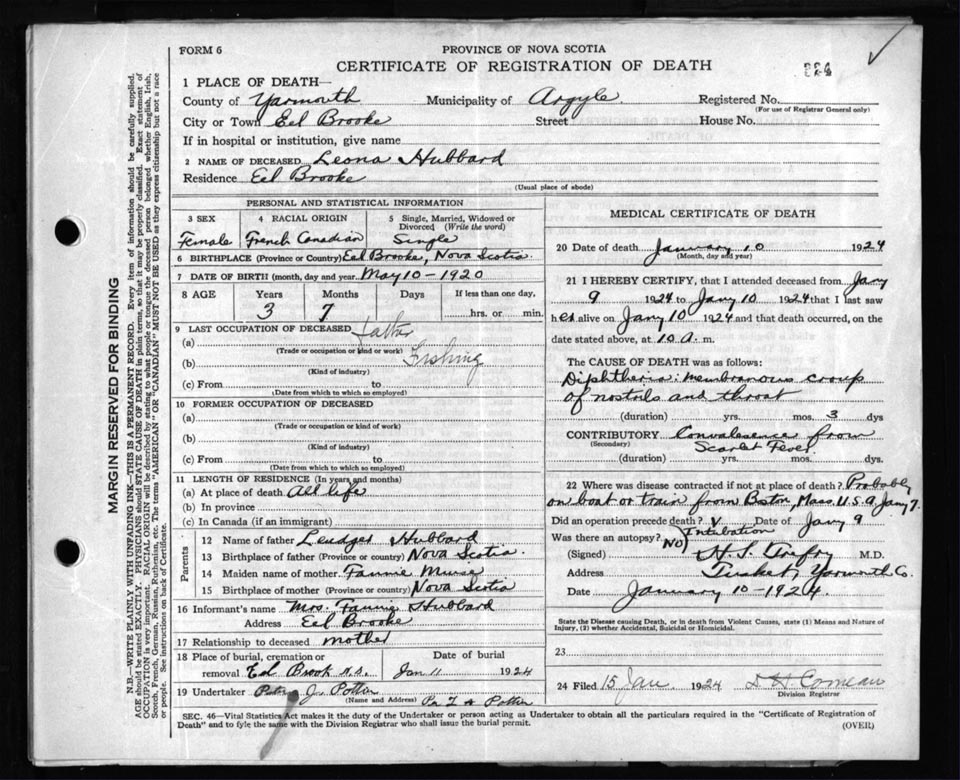 FORM 6
PROVINCE OF NOVA SCOTIA
CERTIFICATE OF REGISTRATION OF DEATH
824
1 PLACE OF DEATH—
County of Yarmouth Municipality of Argyle Registered No.
(For use of Registrar General only)
City or Town Eel Brooke Street House No.
If in hospital or institution, give name
2 NAME OF DECEASED Leona Hubbard
Residence Eel Brooke
(Usual place of abode)
PERSONAL AND STATISTICAL INFORMATION
3 SEX 4 RACIAL ORIGIN 5 Single, Married, Widowed or Divorced (Write the word)
Female French Canadian Single
6 BIRTHPLACE (Province or Country) Eel Brooke, Nova Scotia
7 DATE OF BIRTH (month, day and year) May 10 - 1920
8 AGE Years Months Days If less than one day,
3 7 hrs. or min.
9 LAST OCCUPATION OF DECEASED father
(a)
(Trade or occupation or kind of work)
(b) Fishing
(Kind of industry)
(c) From to
(Date from which to which so employed)
10 FORMER OCCUPATION OF DECEASED
(a)
(Trade or occupation or kind of work)
(b)
(Kind of industry)
(c) From to
(Date from which to which so employed)
11 LENGTH OF RESIDENCE (In years and months)
(a) At place of death All life
(b) In province
(c) In Canada (if an immigrant)
Parents
12 Name of father Hubbard
13 Birthplace of father (Province or country) Nova Scotia
14 Maiden name of mother Fannie Muise
15 Birthplace of mother (Province or country) Nova Scotia
16 Informant's name Mrs. Fannie Hubbard
Address Eel Brooke
17 Relationship to deceased mother
18 Place of burial, cremation or removal Eel Brook N.S. Date of burial Jan 11 1924
19 Undertaker J. Potter
(Name and Address) Potter
MEDICAL CERTIFICATE OF DEATH
20 Date of death January 10 1924
(Month, day and year)
21 I HEREBY CERTIFY, that I attended deceased from Jany
9 1924 to Jany 10 1924 that I last saw
her alive on Jany 10 1924 and that death occurred, on the
date stated above, at 10 a. m.
The CAUSE OF DEATH was as follows:
Diphtheria: membranous croup
of nostrils and throat
(duration) yrs. mos. 3 dys
CONTRIBUTORY Convalesence from
(Secondary) Scarlet Fever
(duration) yrs. mos. dys
22 Where was disease contracted if not at place of death? Probably
on boat or train from Boston, Mass. U.S.A. Jany 7.
Did an operation precede death? Date of Jany 9
Intubation
Was there an autopsy? NO
(Signed) M.D.
Address Tusket, Yarmouth Co.
Date January 10 - 1924.
State the Disease causing Death, or in death from Violent Causes, state (1) Means and Nature of
Injury, (2) whether Accidental, Suicidal or Homicidal.
23
24 Filed 15 Jan. 1924 Comeau
Division Registrar
SEC. 46—Vital Statistics Act makes it the duty of the Undertaker or person acting as Undertaker to obtain all the particulars required in the "Certificate of Registration of
Death" and to fyle the same with the Division Registrar who shall issue the burial permit.
(OVER)
MARGIN RESERVED FOR BINDING
N.B.—WRITE PLAINLY WITH UNFADING INK—THIS IS A PERMANENT RECORD. Every item of information should be carefully supplied.
AGE should be stated EXACTLY. PHYSICIANS should STATE CAUSE OF DEATH in plain terms, so that it may be properly classified. Exact statement of
OCCUPATION is very important. RACIAL ORIGIN will be described by stating to what people or tongue the deceased person belonged whether English, Irish,
Scotch, French, German, Russian, Ruthenian, etc. The terms "AMERICAN" OR "CANADIAN" MUST NOT BE USED as they express citizenship but not a race
or people. See instructions on back of Certificate.